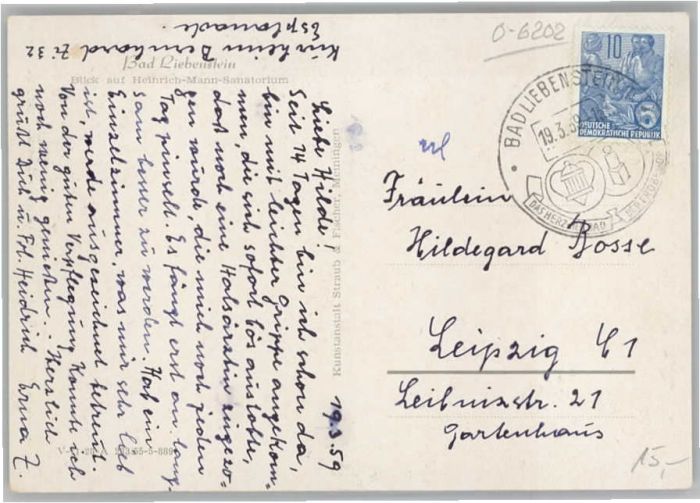 Kurheim Bernhard Zi 32
Esplanade.
Bad Liebenstein
Blick auf Heinrich-Mann-Sanatorium
19.3.59
Liebe Hilde!
Seit 14 Tagen bin ich schon da,
bin mit leichter Grippe angekom-
men, die sich sofort bös austobte,
daß noch eine Halsärztin zugezo-
gen wurde, die mich noch jeden
Tag pinselt. Es fängt erst an lang-
sam besser zu werden. Hab ein
Einzelzimmer, was mir sehr lieb
ist, werde ausgezeichnet betreut.
Von der guten Verpflegung konnte ich
noch wenig genießen. Herzlich
grüßt Dich u. Frl. Heidrich Erna Z.
Kunstanstalt Straub & Fischer, Meiningen
O-6202
10
DEUTSCHE
DEMOKRATISCHE REPUBLIK
5
BAD LIEBENSTEIN
19.3.59
DAS HERZHEILBAD
Fräulein
Hildegard Bosse
Leipzig C1
Leibnizstr. 21
Gartenhaus
15,-